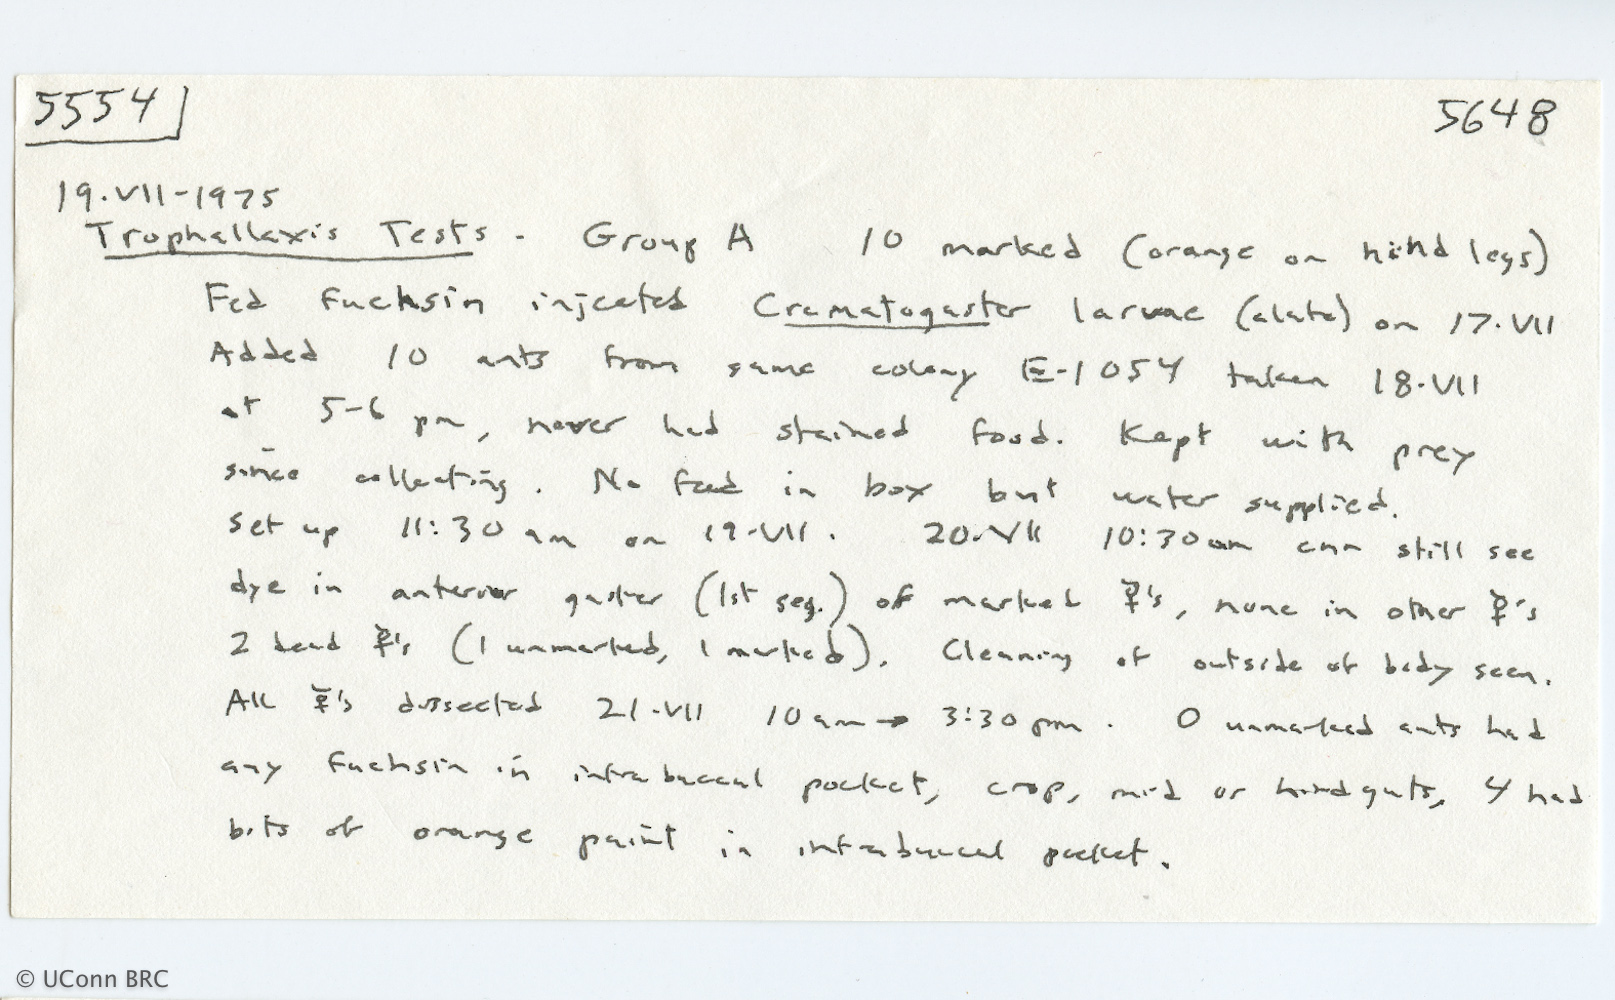 5554 5648
19.VII-1975
Trophallaxis Tests. Group A 10 marked (orange on hind legs)
Fed fuchsin injected Crematogaster larvae (alate) on 17.VII
Added 10 ants from same colony E-1054 taken 18.VII
at 5-6 pm, never had stained food. Kept with prey
since collecting. No food in box but water supplied.
Set up 11:30 am on 19.VII. 20.VII 10:30am can still see
dye in anterior gaster (1st seg.) of marked ☿'s, none in other ☿'s
2 dead ☿'s (1 unmarked, 1 marked). Cleaning of outside of body seen.
All ☿'s dissected 21.VII 10am → 3:30pm. 0 unmarked ants had
any fuchsin in infrabuccal pocket, crop, mid or hindguts, 4 had
bits of orange paint in infrabuccal pocket.
© UConn BRC